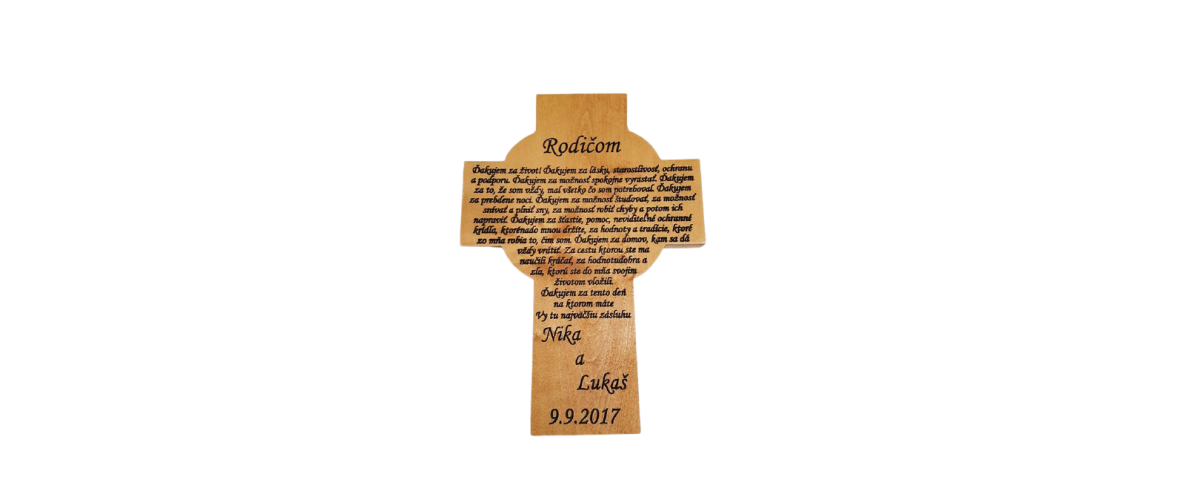 Rodičom
Ďakujem za život! Ďakujem za lásku, starostlivosť, ochranu
a podporu. Ďakujem za možnosť spokojne vyrastať. Ďakujem
za to, že som vždy, mal všetko čo som potreboval. Ďakujem
za prebdene noci. Ďakujem za možnosť študovať, za možnosť
snívať a plniť sny, za možnosť robiť chyby a potom ich
napraviť. Ďakujem za šťastie, pomoc, neviditeľné ochranné
krídla, ktorénado mnou držíte, za hodnoty a tradície, ktoré
zo mňa robia to, čim som. Ďakujem za domov, kam sa dá
vždy vrátiť. Za cestu ktorou ste ma
naučili kráčať, za hodnotudobra a
zla, ktorú ste do mňa svojim
životom vložili.
Ďakujem za tento deň
na ktorom máte
Vy tu najväčšiu zásluhu.
Nika
a
Lukaš
9.9.2017